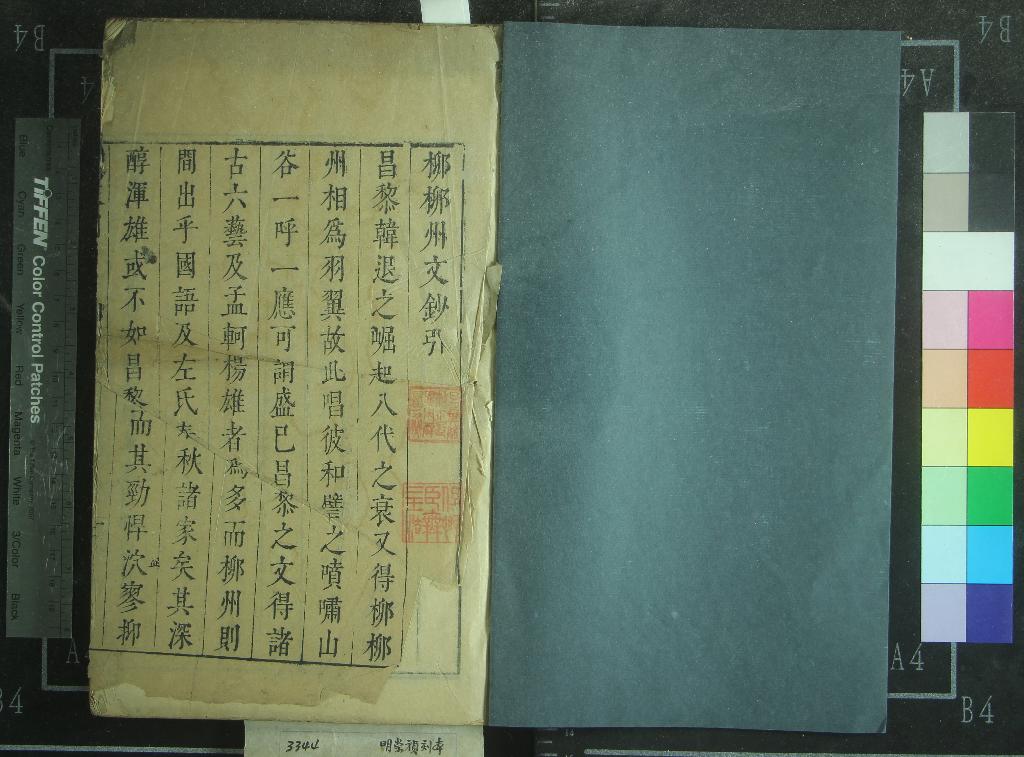 柳柳州文鈔引
昌黎韓退之崛起八代之衰又得柳柳
州相爲羽翼故此唱彼和譬之噴嘯山
谷一呼一應可謂盛已昌黎之文得諸
古六藝及孟軻楊雄者爲多而柳州則
間出乎國語及左氏春秋諸家矣其深
醇渾雄或不如昌黎而其勁悍泬寥抑
3344 明崇禎刻本
TIFFEN Color Control Patches
Blue Cyan Green Yellow Red Magenta White 3/Color Black
B4
A4
A4
B4